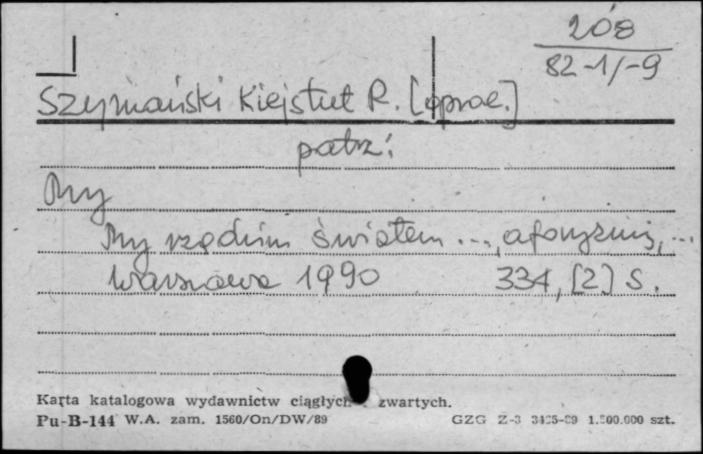 208
82-1/-9
Szymański Kiejstut R. [oprac.]
patrz:
My
My rządzim światem ..., aforyzmy, ...
Warszawa 1990 334, [2] s.
Karta katalogowa wydawnictw ciągłych zwartych.
Pu-B-144 W.A. zam. 1560/On/DW/89 GZG Z-3 1.500.000 szt.